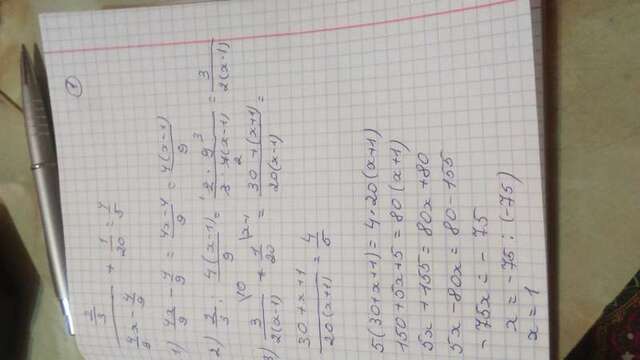 ①
2/3 / (4x/9 - 4/9) + 1/20 = 4/5
1) 4x/9 - 4/9 = 4x-4/9 = 4(x-1)/9
2) 2/3 : 4(x-1)/9 = 2·9/3·4(x-1) = 3/2(x-1)
3) 3/2(x-1) + 1/20 = 30+(x+1)/20(x-1) =
30+x+1/20(x+1) = 4/5
5(30+x+1) = 4·20(x+1)
150+5x+5 = 80(x+1)
5x+155 = 80x+80
5x-80x = 80-155
-75x = -75
x = -75 : (-75)
x = 1